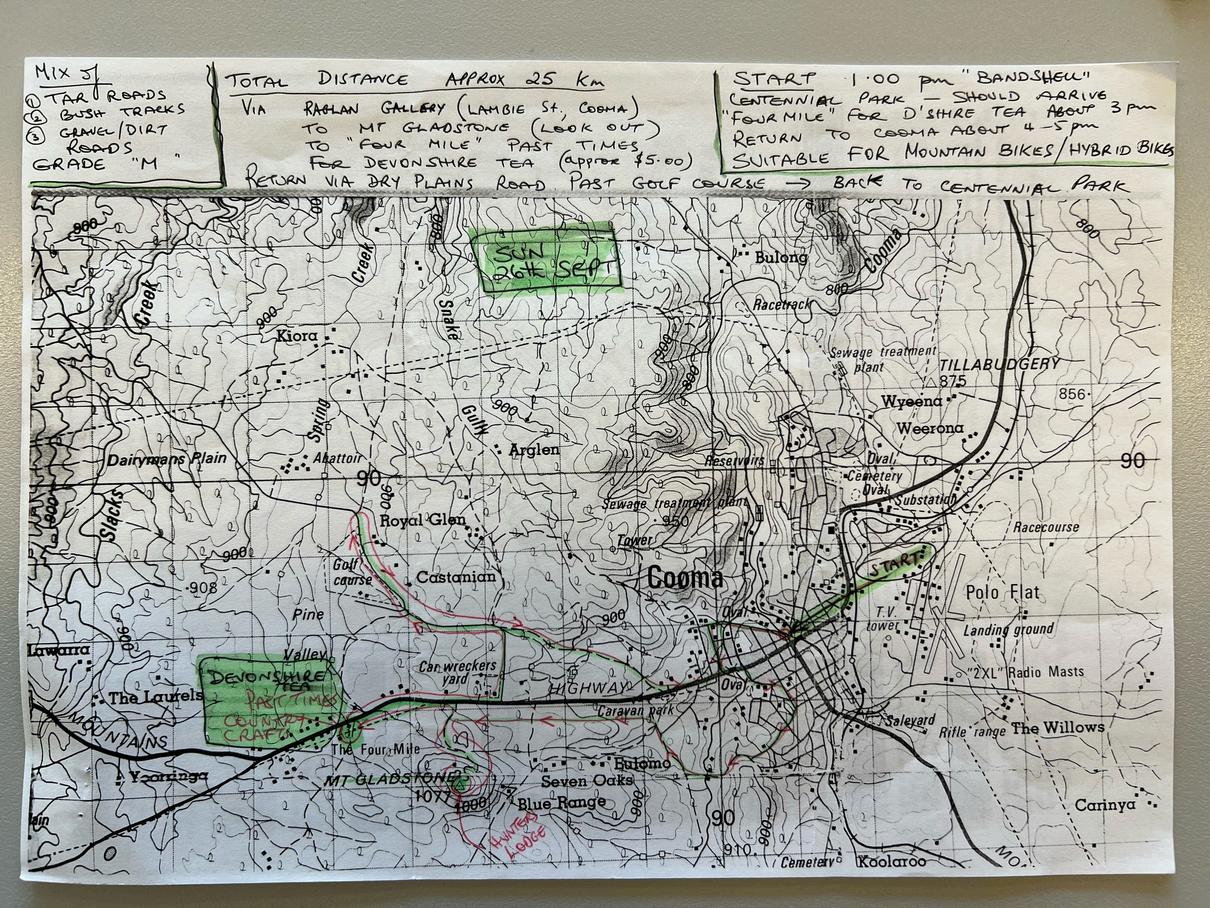 MIX of
① TAR ROADS
② BUSH TRACKS
③ GRAVEL/DIRT
ROADS
GRADE "M"
TOTAL DISTANCE APPROX 25 Km
VIA RAGLAN GALLERY (LAMBIE St., COOMA)
TO MT GLADSTONE (LOOK OUT)
TO "FOUR MILE" PAST TIMES
FOR DEVONSHIRE TEA (approx $5.00)
RETURN VIA DRY PLAINS ROAD PAST GOLF COURSE → BACK TO CENTENNIAL PARK
START 1.00 pm "BANDSHELL"
CENTENNIAL PARK - SHOULD ARRIVE
"FOUR MILE" FOR D'SHIRE TEA ABOUT 3 pm
RETURN TO COOMA ABOUT 4-5pm
SUITABLE FOR MOUNTAIN BIKES/HYBRID BIKES
800
Creek
800
SUN
26th SEPT
Bulong
Cooma
800
800
Creek
Snake
Racetrack
900
Kiora
900
800
Sewage treatment
plant
TILLABUDGERY
875
856
Wyeena
Weerona
Spring
Gully
900
Arglen
Dairymans Plain
Abattoir
90
Reservoirs
Oval
Cemetery
Oval
Substation
90
Slacks
900
900
Royal Glen
Sewage treatment plant
950
Tower
Racecourse
900
START
Golf
course
Castanian
908
Cooma
Polo Flat
Pine
900
Oval
T.V.
tower
Landing ground
900
Valley
Car wreckers
yard
"2XL" Radio Masts
DEVONSHIRE
TEA
PAST TIMES
COUNTRY
CRAFTS
The Laurels
HIGHWAY
Oval
Caravan park
Saleyard
Rifle range
The Willows
MOUNTAINS
The Four Mile
MT GLADSTONE
1077
1000
Bulomo
Seven Oaks
Blue Range
900
90
900
910
Carinya
HUNTERS
LODGE
Cemetery
Koolaroo
MO